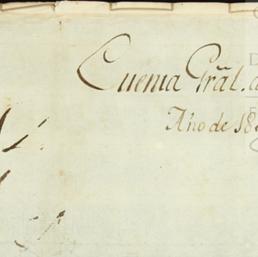 Cuenta Grãl. d
Año de 18